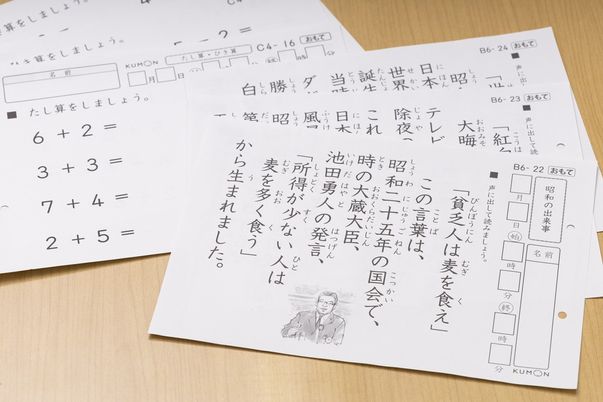 B6-22 おもて
昭和の出来事
名前
月
日
始
時
分
終
時
分
KUMON
■ 声に出して読みましょう。
「貧乏人は麦を食え」
この言葉は、
昭和二十五年の国会で、
時の大蔵大臣、
池田勇人の発言、
「所得が少ない人は
麦を多く食う」
から生まれました。
B6-23 おもて
■ 声に出して読
「紅
大晦
テレビ
除夜
これ
日本
風
昭
B6-24 おもて
■ 声に出し
昭
日本
世界
誕生
当時
ダ
勝
白
C4-16 おもて
たし算・ひき算
KUMON
月
日
名前
■ たし算をしましょう。
6 + 2 =
3 + 3 =
7 + 4 =
2 + 5 =
ひき算をしましょう。
算をしましょう。